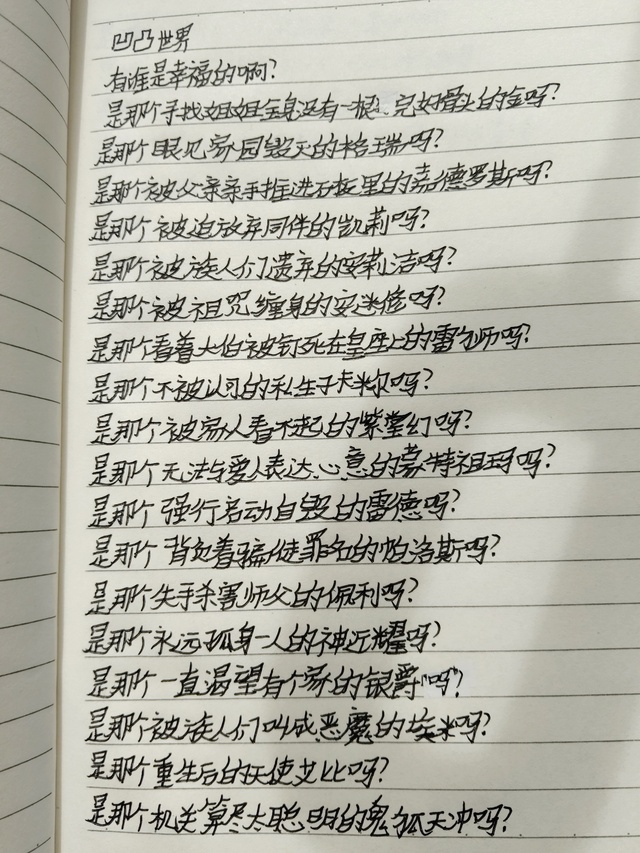 凹凸世界
有谁是幸福的啊?
是那个寻找姐姐全身没有一根完好骨头的金吗?
是那个眼见家园毁灭的格瑞吗?
是那个被父亲亲手推进石板里的嘉德罗斯吗?
是那个被迫放弃同伴的凯莉吗?
是那个被族人们遗弃的安莉洁吗?
是那个被诅咒缠身的安迷修吗?
是那个看着大伯被钉死在皇座上的雷狮吗?
是那个不被认可的私生子卡米尔吗?
是那个被家人看不起的紫堂幻吗?
是那个无法与爱人表达心意的蒙特祖玛吗?
是那个强行启动自毁的雷德吗?
是那个背负着骗徒罪名的帕洛斯吗?
是那个失手杀害师父的佩利吗?
是那个永远孤身一人的神近耀吗?
是那个一直渴望有个家的银爵吗?
是那个被族人们叫成恶魔的埃米吗?
是那个重生后的天使艾比吗?
是那个机关算尽太聪明的鬼狐天冲吗?